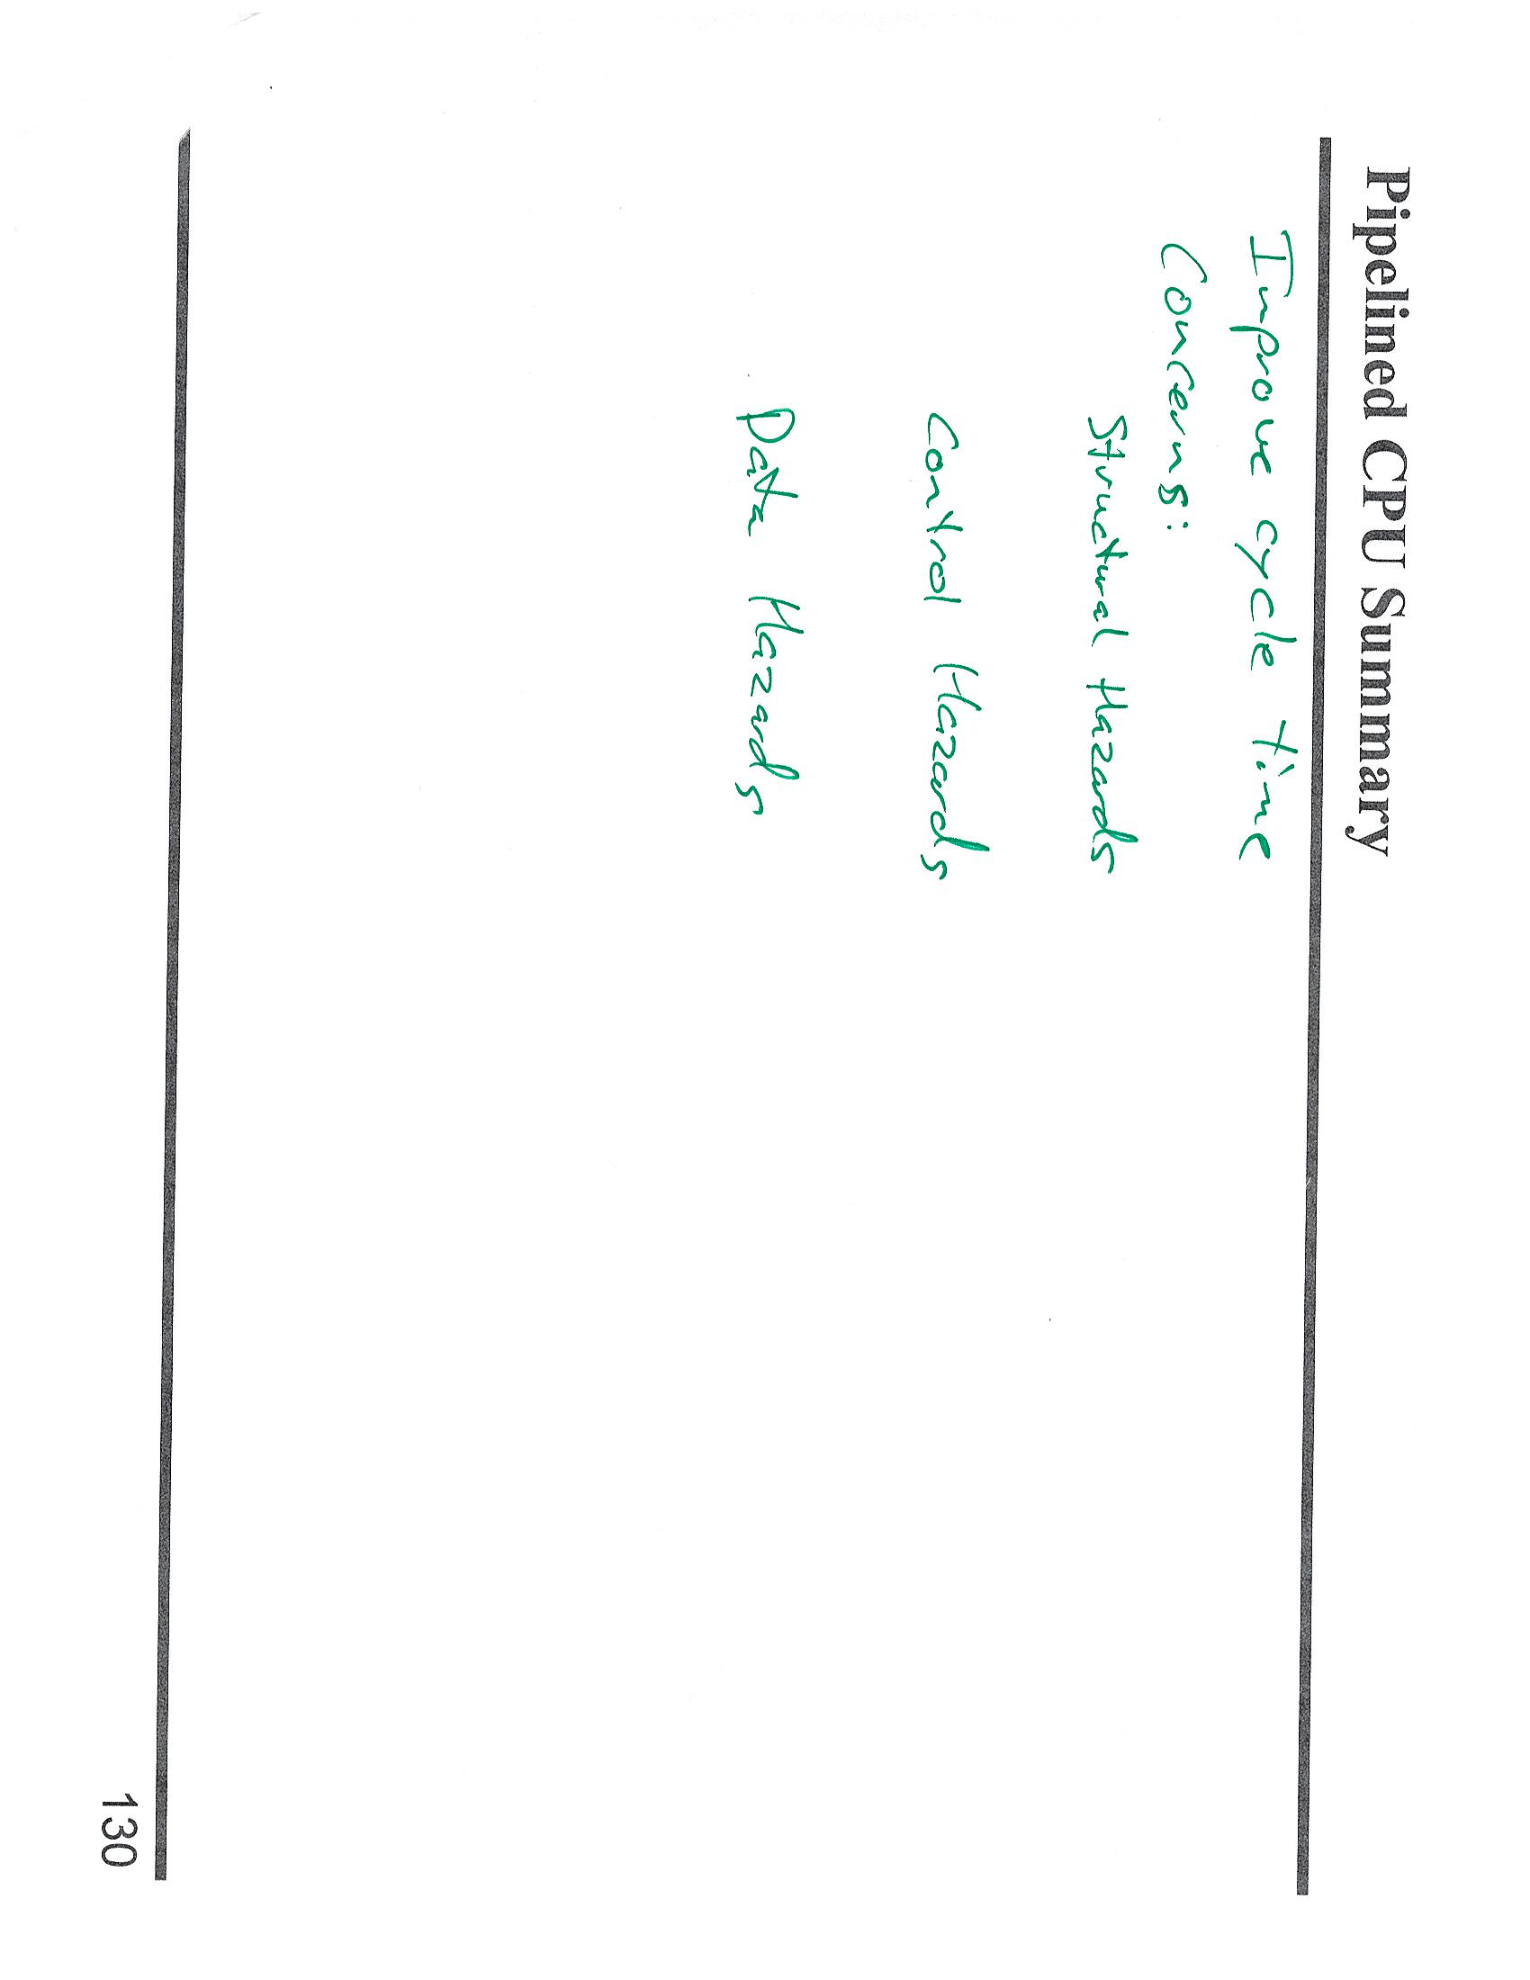 Pipelined CPU Summary
Improve cycle time
Concerns:
Structural Hazards
Control Hazards
Data Hazards
130